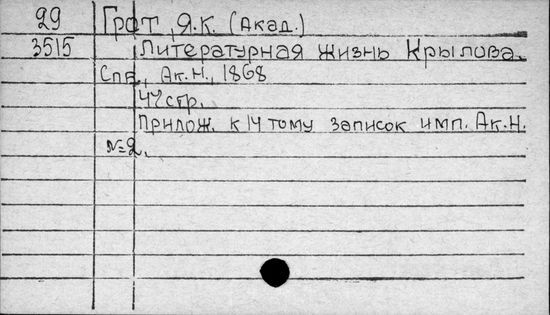 29 Грот, Я.К. (Акад.)
3515 Литературная жизнь Крылова.
Спб., Ак.Н., 1868
47 стр.
Прилож. к 14 тому записок имп. Ак.Н.
№2.